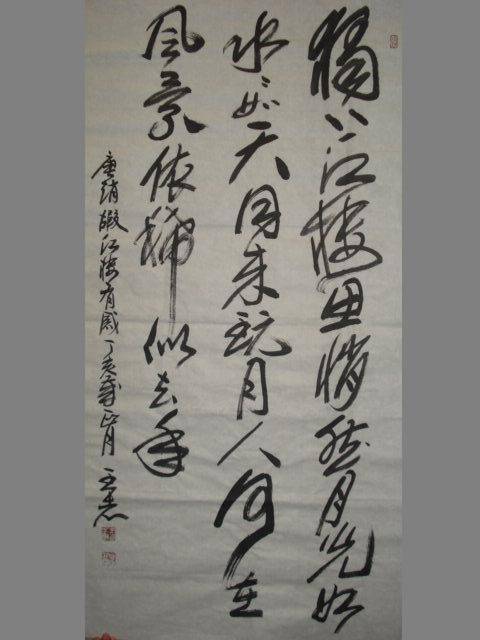 獨上江樓思悄然月光如
水〻如天同来玩月人何在
风景依稀似去年
唐趙嘏江樓有感丁亥正月 王